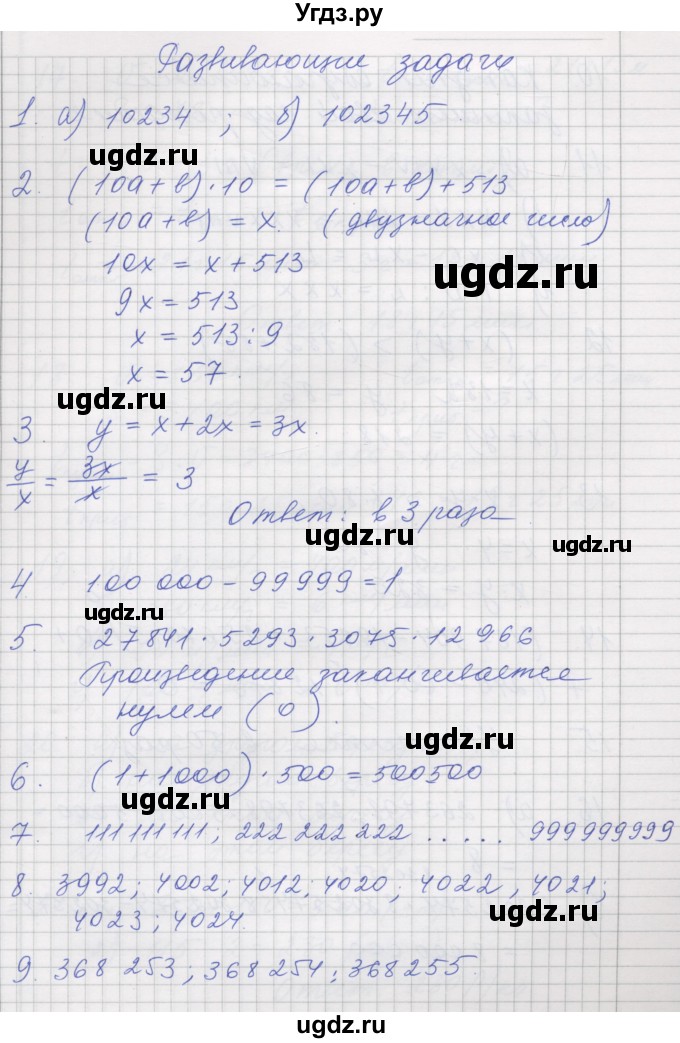 Угдз.ру
Развивающие задачи
1. а) 10234 ; б) 102345.
ugdz.ru
2. (10a + в) · 10 = (10a + в) + 513
(10a + в) = x. (двузначное число)
10x = x + 513
ugdz.ru
9x = 513
x = 513 : 9
x = 57.
ugdz.ru
3. y = x + 2x = 3x.
y/x = 3x/x = 3
Ответ: в 3 раза
ugdz.ru
ugdz.ru
4 100 000 - 99999 = 1
ugdz.ru
5. 27841 · 5293 · 3075 · 12966
Произведение заканчивается
нулем (0).
ugdz.ru
6. (1 + 1000) · 500 = 500500
ugdz.ru
7. 111 111 111, 222 222 222 ..... 999999999
8. 3992; 4002; 4012; 4020; 4022, 4021;
4023; 4024.
ugdz.ru
9. 368 253; 368 254; 368255.
ugdz.ru